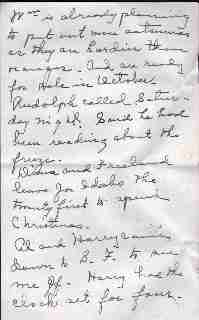 Wm is already planning
to put out more satsumas
as they are hardier than
oranges. And are ready
for sale in October
Rudolph called Satur-
day night. Said he had
been reading about the
freeze.
Diana and Freeland
leave for Idaho the
twenty first to spend
Christmas.
Al and Harry came
down to B. F. to see
me off. Harry had the
clock set for four.